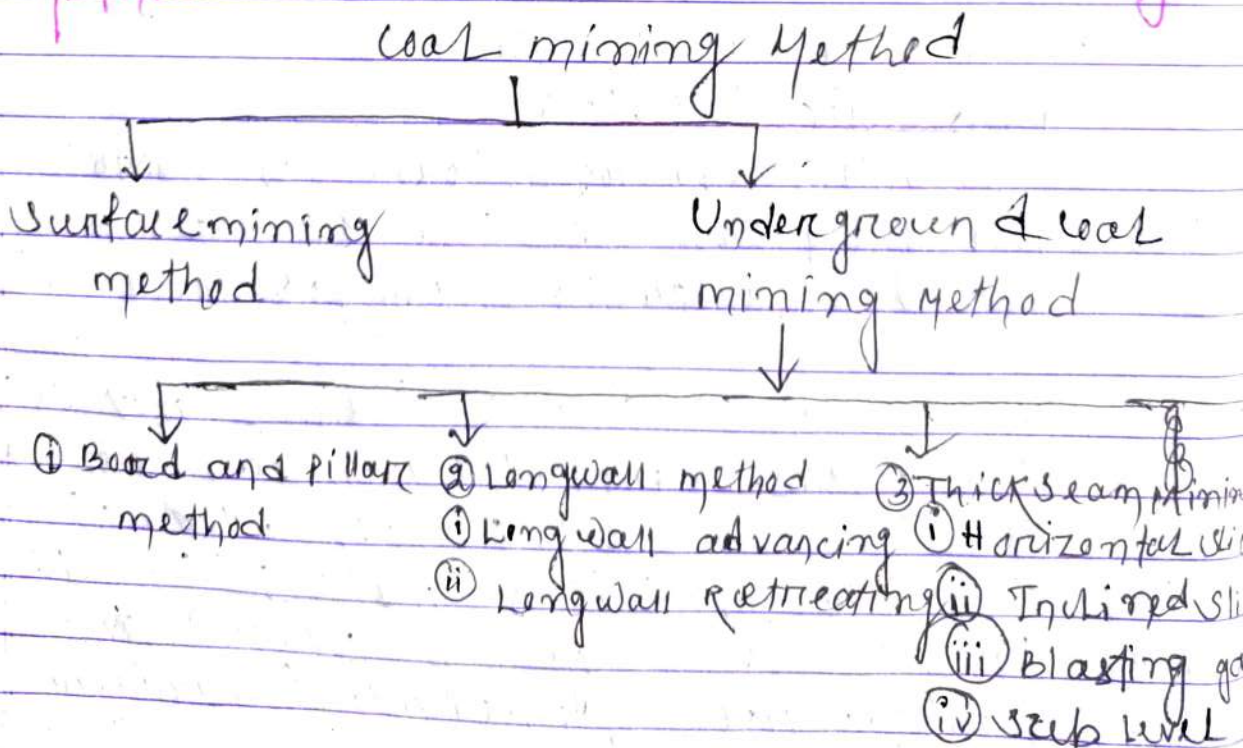 Coal mining Method
Surface mining method
Underground coal mining Method
① Board and pillar method
② Longwall method
ⓘ Longwall advancing
ⓘⓘ Longwall Retreating
③ Thick seam Minin
ⓘ Horizontal sli
ⓘⓘ Inclined sli
ⓘⓘⓘ Blasting ga
ⓘⓥ Sub level